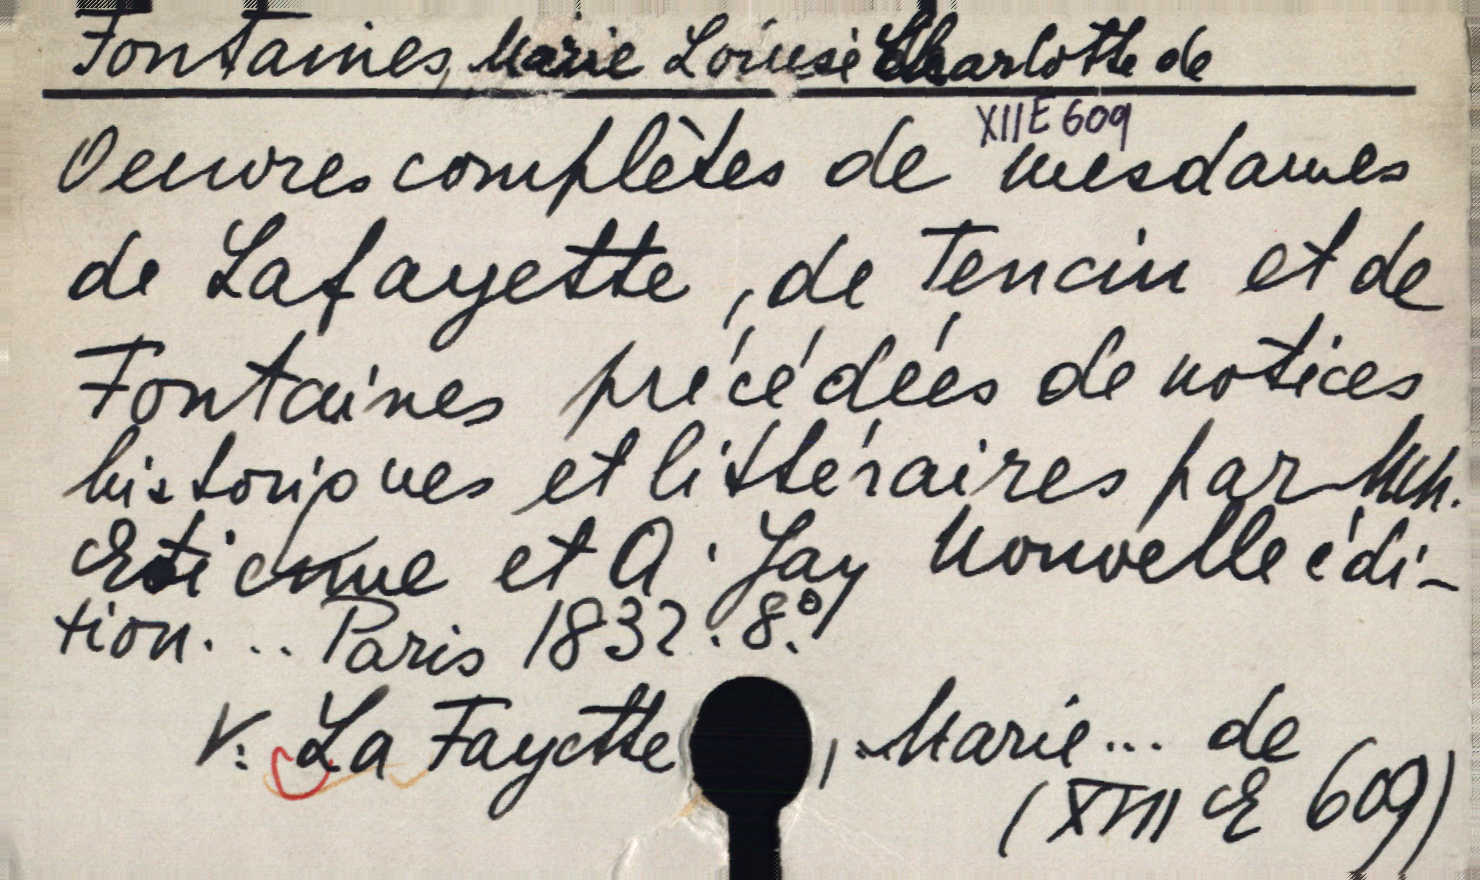 Fontaines, Marie Louise Charlotte de
XIIE 609
Oeuvres complètes de mesdames
de Lafayette, de Tencin et de
Fontaines précédées de notices
historiques et littéraires par Mm.
Etienne et A. Jay Nouvelle édi-
tion... Paris 1832. 8.°
V: La Fayette, Marie... de
(XVII E 609)